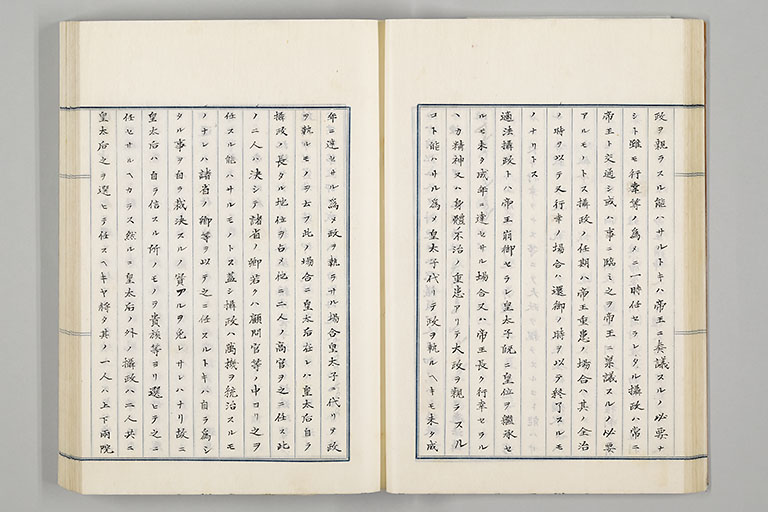 政ヲ親ラスル能ハサルトキハ帝王ニ奏議スルノ必要ナ
シト雖モ行幸等ノ為メニ一時任セラレタル攝政ハ常ニ
帝王ト交通シ或ハ事ニ臨ミ之ヲ帝王ニ稟議スルノ必要
アルモノトス攝政ノ任期ハ帝王重患ノ場合ハ其ノ全治
ノ時ヲ以テ又行幸ノ場合ハ還御ノ時ヲ以テ終了スルモ
ノナリトス
適法攝政トハ帝王崩御セラレ皇太子既ニ皇位ヲ繼承セ
ルモ未タ成年ニ達セサル場合又ハ帝王長ク行幸セラル
ヘカ精神又ハ身體不治ノ重患アリテ大政ヲ親ラスル
コト能ハサル為メ皇太子代リテ政ヲ執ルヘキモ未タ成
年ニ達セサル為メ政ヲ執ラサル場合皇太子ニ代リテ政
ヲ執ルモノヲ云フ此ノ場合ニ皇太后在レハ皇太后自ラ
攝政ノ長タル地位ヲ占メ他ニ二人ノ高官ヲ之ニ任ス此
ノ二人ハ決シテ諸省ノ卿若クハ顧問官等ノ中ヨリ之ヲ
任スル能ハサルモノトス蓋シ攝政ハ萬機ヲ統治スルモ
ノナレハ諸省ノ卿等ヲ以テ之ニ任スルトキハ自ラ為シ
タル事ヲ自ラ裁決スルノ責アルヲ免レサレハナリ故ニ
皇太后ハ自ラ信スル所ノモノヲ貴族等ヨリ選ヒテ之ニ
任セサルヘカラス然ルニ皇太后ノ外ノ攝政ハ二人共ニ
皇太后之ヲ選ヒテ任スヘキヤ将タ其ノ一人ハ上下兩院